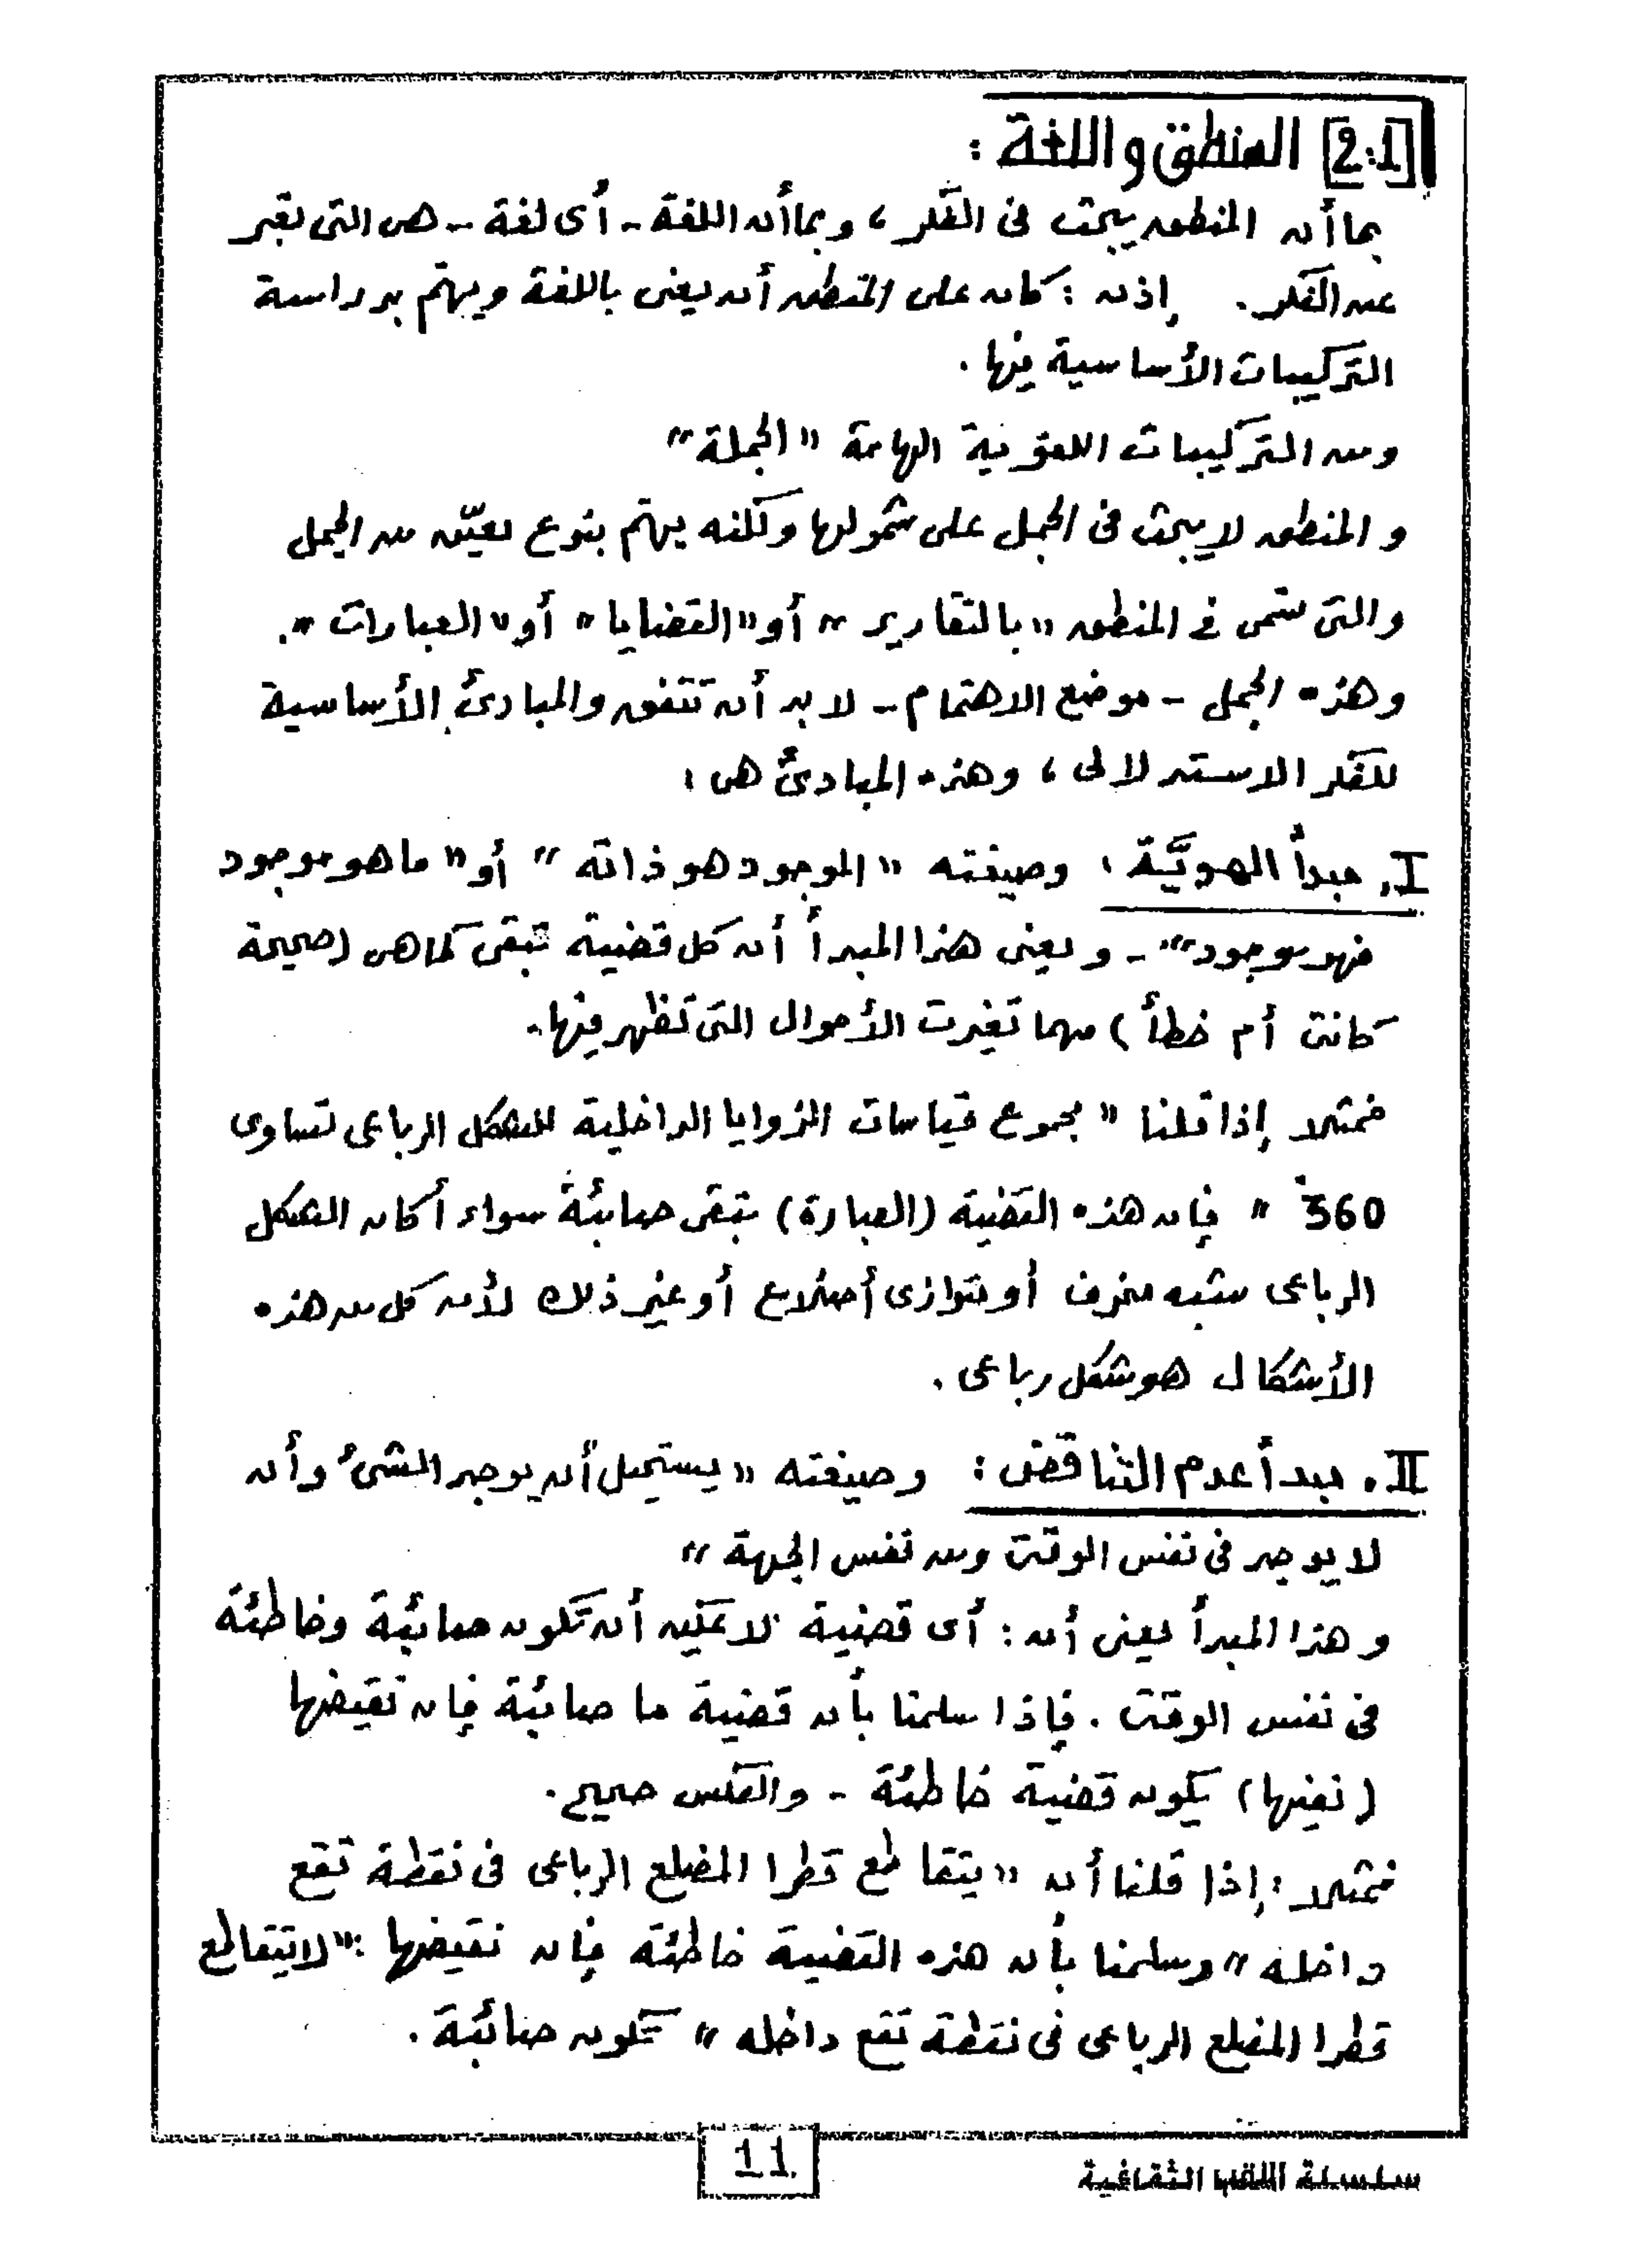 [2:1] المنطق واللغة :
بما أن المنطق يبحث فى الفكر ، وبما أن اللغة - أى لغة - هى التى تعبر
عن الفكر . إذن : كان على المنطق أن يعنى باللغة ويهتم بدراسة
التركيبات الأساسية فيها .
ومن التركيبات اللغوية الهامة " الجملة "
والمنطق لا يبحث فى الجمل على شمولها ولكنه يهتم بنوع معيّن من الجمل
والتى تسمى فى المنطق " بالتقارير " أو " القضايا " أو " العبارات " .
وهذه الجمل - موضع الاهتمام - لا بد أن تتفق والمبادئ الأساسية
للفكر الاستدلالى ، وهذه المبادئ هى :
I. مبدأ الهويَّة : وصيغته " الموجود هو ذاته " أو " ما هو موجود
فهو موجود " - ويعنى هذا المبدأ أن كل قضية تبقى كما هى (صحيحة
كانت أم خطأ ) مهما تغيرت الأحوال التى تظهر فيها .
فمثلاً إذا قلنا " مجموع قياسات الزوايا الداخلية للشكل الرباعى تساوى
360° " فإن هذه القضية (العبارة) تبقى صائبة سواء أكان الشكل
الرباعى شبه منحرف أو متوازى أضلاع أو غير ذلك لأن كل من هذه
الأشكال هو شكل رباعى .
II. مبدأ عدم التناقض : وصيغته " يستحيل أن يوجد الشئ وأن
لا يوجد فى نفس الوقت ومن نفس الجهة "
وهذا المبدأ يعنى أن : أى قضية لا يمكن أن تكون صائبة وخاطئة
فى نفس الوقت . فإذا سلمنا بأن قضية ما صائبة فإن نقيضها
( نفيها ) يكون قضية خاطئة - والعكس صحيح .
فمثلاً : إذا قلنا أن " يتقاطع قطرا المضلع الرباعى فى نقطة تقع
داخله " وسلمنا بأن هذه القضية خاطئة فإن نقيضها : " لا يتقاطع
قطرا المضلع الرباعى فى نقطة تقع داخله " تكون صائبة .
11
سلسلة الثقافية